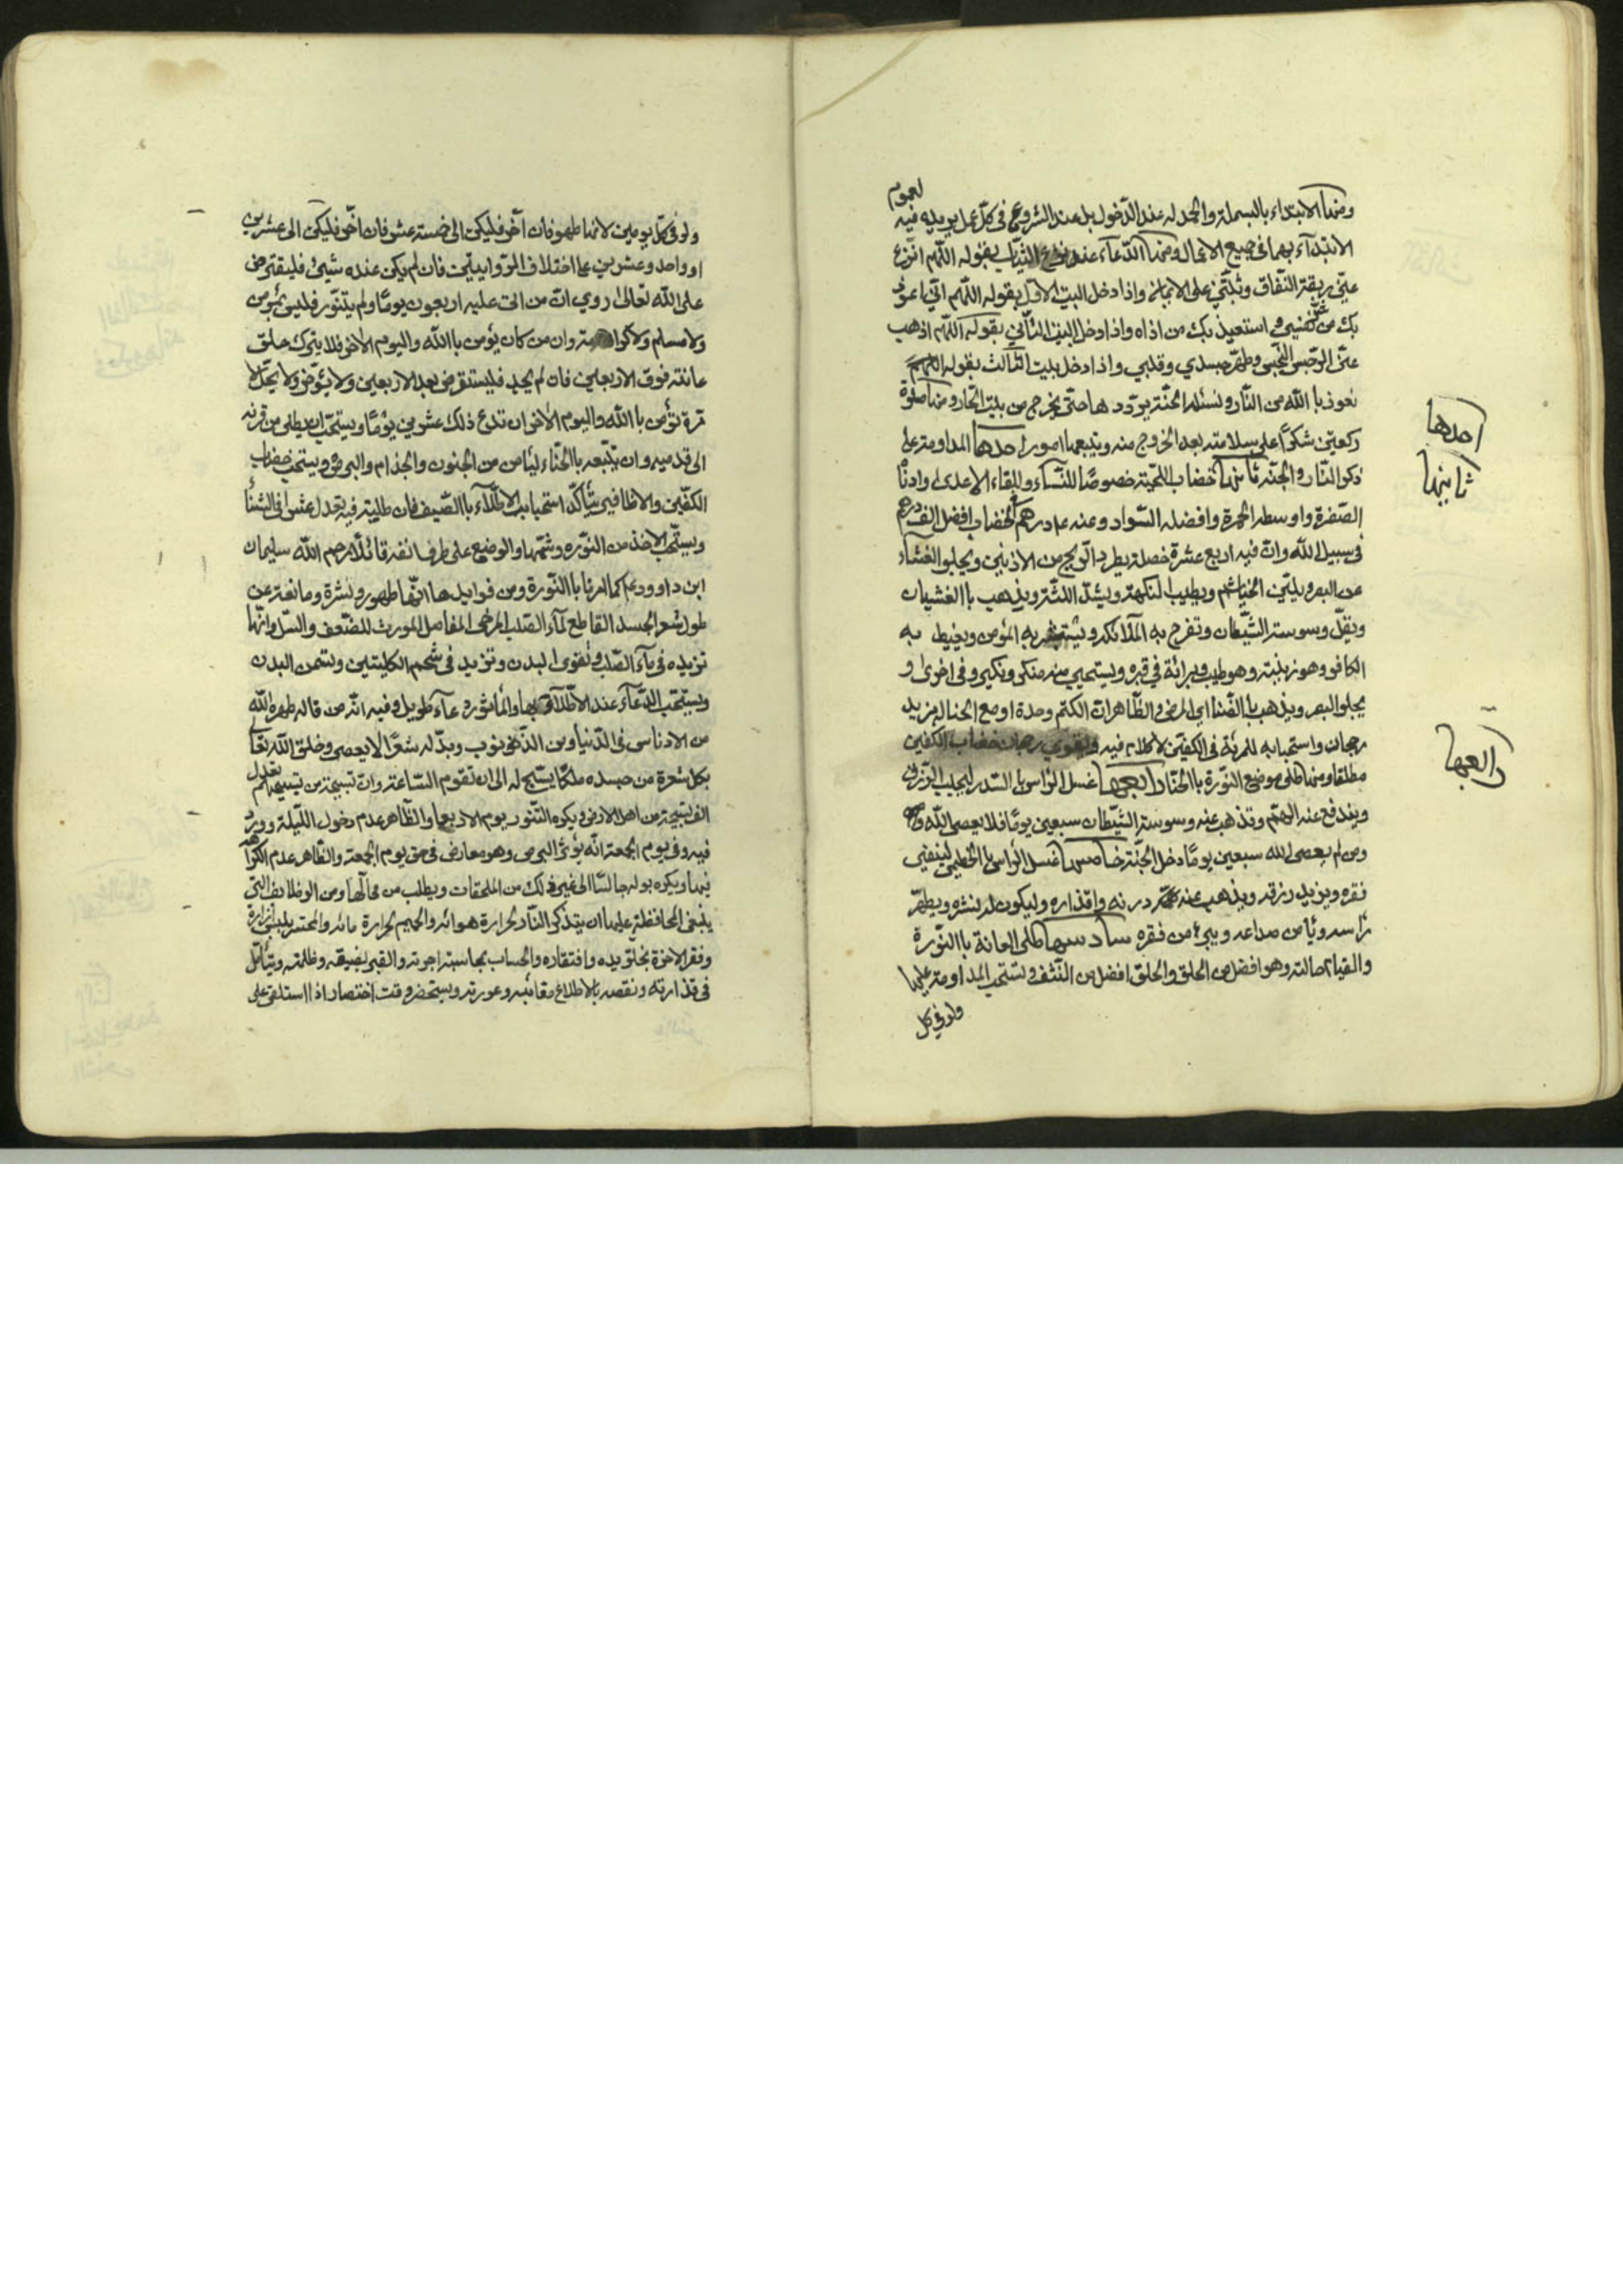 لعموم
ومنها الابتداء بالبسملة والحمد له عند الدّخول بل عند الشروع في كلّ عمل يريد فيه
الابتدآء بهما في جميع الاعمال ومنها الدّعآء عند نزع الثيّاب بقوله اللّهم انزع
عنّي ربقة النّفاق وثبّتني على الايمان واذا دخل البيت الاوّل بقوله اللّهم انّي اعوذ
بك من شرّ نفسي و استعيذ بك من اذاه واذا دخل البيت الثّاني بقوله اللّهم اذهب
عنّي الرّجس النّجس وطهّر جسدي وقلبي واذا دخل بيت الثّالث بقوله اللّهم
نعوذ با الله من النّار و نسئله الجنّة يردّدها حتّى يخرج من بيت الحّار ومنها صلوة
ركعتين شكرًا على سلامته بعد الخروج منه ويتبعها امور احدها المداومة على
احدها
ذكر النّار و الجنّة ثانيها خضاب اللّحية خصوصًا للنّسآء وللقاء الاعدى وادناه
ثانيها
الصّفرة واوسطه الحمرة وافضله السّواد وعنه ع درهم الخضاب افضل الف درهم
في سبيل الله وانّ فيه اربع عشرة خصلة يطرد الرّيح من الاذنين ويجلو الغشآء
عن البصر ويليّن الخياشيم ويطيب النكهة ويشدّ اللثّة ويذهب با الغشيان
ويقلّ وسوسة الشّيطان وتفرح به الملآئكة ويستبشر به المؤمن ويغيظ به
الكافر وهو زينة وهو طيب وبرائة في قبره ويستحيي منه منكر ونكير وفي اخرى و
يجلو البصر ويذهب با الضّنا اي المرض و الظّاهر انّ الكتم وحده او مع الحنا له مزيد
رجحان واستحبابه للمرئة في الكفّين لا كلام فيه ويقوي رجحان خضاب الكفّين
مطلقا ومنها طلى موضع النّورة با الحنّا رابعها غسل الرّاس با السّدر ليجلب الرّزق
رابعها
ويندفع عنه الهمّ وتذهب عنه وسوسة الشّيطان سبعين يومًا فلا يعصى الله
ومن لم يعصى الله سبعين يومًا دخل الجنّة خامسها غسل الرّاس با الخطمي لينفي
فقره ويزيد رزقه ويذهب عنه درنه واقذاره وليكون له نشره ويطهّر
رأسه ويأمن صداعه ويبرء من فقره سادسها طلى العانة با النّورة
والقيام حالته وهو افضل من الحلق والحلق افضل من النّتف وتستحب المداومة عليها
ولو في كل
ولو في كلّ يومين لانها طهور فان اخّر فليكن الى خمسة عشر فان اخّر فليكن الى عشرين
او واحد وعشرين على اختلاف الرّوايتين فان لم يكن عنده شيئ فليقترض
على الله تعالى روي انّ من اتت عليه اربعون يومًا ولم يتنّور فليس بمؤمن
ولا مسلم ولا كرامة وان من كان يؤمن باالله واليوم الاخر فلا يترك حلق
عانته فوق الاربعين فان لم يجد فليستقرض بعد الاربعين ولا يؤخر ولا يحلّ لا
مرة تؤمن باالله واليوم الاخر ان تدع ذلك عشرين يومًا ويستحب ان يطلى من قرنه
الى قدميه وان يتبعه باالحنّاء ليأمن من الجنون والجذام والبرص ويستحب خضاب
الكفّين والاظافير ويتأكّد استحباب الاطّلاء باالصّيف فان طلية فيه تعدل عشرا في الشتأ
ويستحّب الاخذ من النّوره وشمّها والوضع على طرف انفه قائلًا رحم الله سليمان
ابن داوود ع كما امرنا باالنّورة ومن فوايدها انّها طهور ونشرة ومانعة عن
طول شعر الجسد القاطع لمآء الصّلب المرخى المفاصل المورث للضّعف والسّل وانّها
تزيده في مآء الصّلب وتقوى البدن وتزيد في شحم الكليتين وتسمن البدن
ويستحب الدّعآء عند الاطّلاء بها والمأثور دعآء طويل وفيه انّه من قاله طهره الله
من الادناس في الدّنيا ومن الذّنوب وبدّله شعرًا لا يعصى وخلق الله تعالى
بكل شعرة من جسده ملكًا يسّبح له الى ان تقوم السّاعة وانّ تسبيحة من تسبيحهم تعدل
الف تسبيحة من اهل الارض ويكره التّنور يوم الاربعا والظّاهر عدم دخول الليلة وورد
فيه وفي يوم الجمعة انّه يورث البرص وهو معارض في حق يوم الجمعة والظّاهر عدم الكراهه
فيها ويكره بوله جالسًا الى غير ذلك من الملحقات ويطلب من محالّها ومن الوظايف الّتي
ينبغي المحافظة عليها ان يتذكّر النّار لحرارة هوائه والحميم لحرارة مائه والمحشر
وفقر الاخرة بخلوّ يده وافتقاره والحساب بمحاسبة اجرته والقبر بضيقه وظلمته ويتأمّل
في قذارته ونقصه بالاطلاع معائبه وعورته ويستحضر وقت احتضار اذا استلقى على